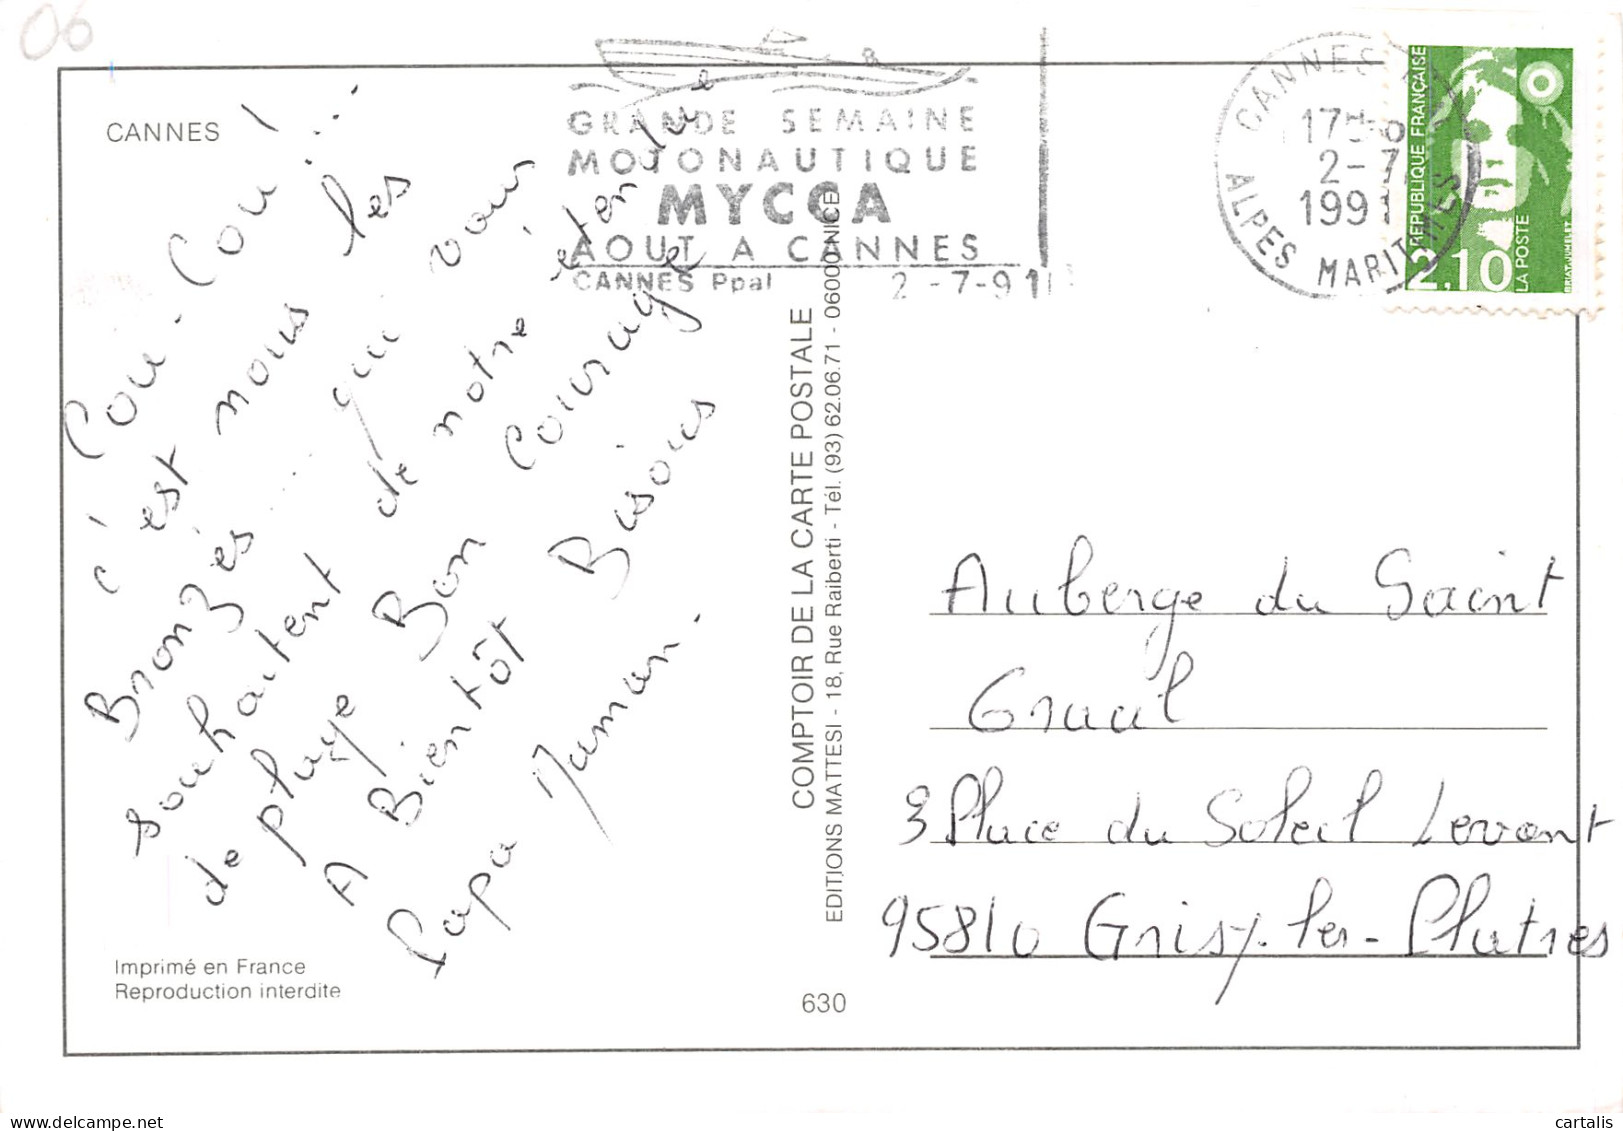 06
CANNES
GRANDE SEMAINE
MOTONAUTIQUE
MYCCA
AOUT A CANNES
CANNES Ppal 2-7-91
CANNES
17H
2-7
1991
ALPES MARITIMES
RÉPUBLIQUE FRANÇAISE
2,10
LA POSTE
BRIAT.JUMELET
Cou-Cou !...
c'est nous les
Bronzés... qui vous
souhaitent de notre
de plage Bon Courage
A Bientôt Bisous
Papa Maman.
COMPTOIR DE LA CARTE POSTALE
EDITIONS MATTESI - 18, Rue Raiberti - Tél. (93) 62.06.71 - 06000 NICE
Auberge du Saint
Graal
3 Place du Soleil Levant
95810 Grisy-les-Platres
Imprimé en France
Reproduction interdite
630
cartal08